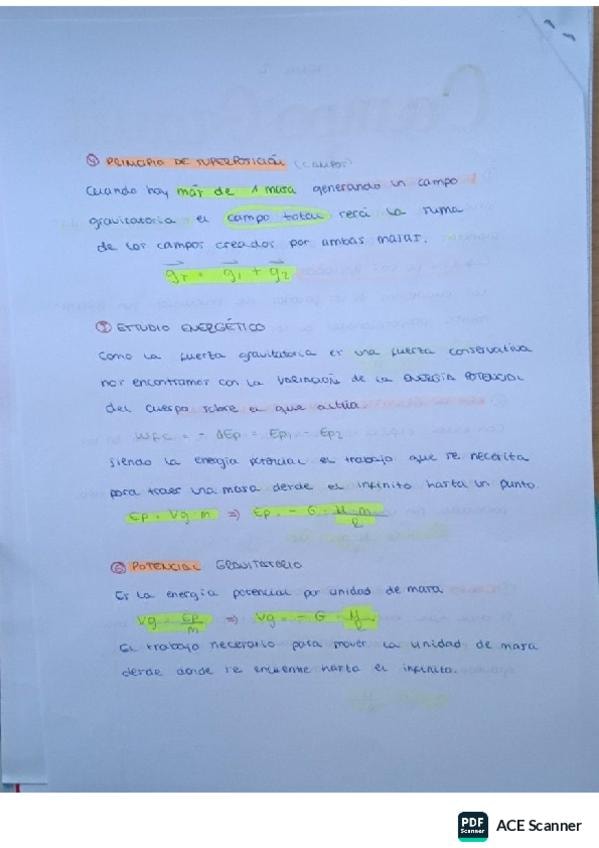 ④ PRINCIPIO DE SUPERPOSICIÓN (CAMPO)
Cuando hay más de 1 masa generando un campo
gravitatoria el campo total será la suma
de los campos creados por ambas masas.
gT = g1 + g2
⑤ ESTUDIO ENERGÉTICO
Como la fuerza gravitatoria es una fuerza conservativa
nos encontramos con la VARIACIÓN DE LA ENERGÍA POTENCIAL
del cuerpo sobre el que actúa.
WFC = - ΔEp = Ep1 - Ep2
siendo la energía potencial el trabajo que se necesita
para traer una masa desde el infinito hasta un punto.
Ep = Vg · m ⇒ Ep = - G · M · m / R
⑥ POTENCIAL GRAVITATORIO
Es la energía potencial por unidad de masa
Vg = Ep / m ⇒ Vg = - G · M / R
El trabajo necesario para mover la unidad de masa
desde donde se encuentre hasta el infinito.
PDF Scanner ACE Scanner